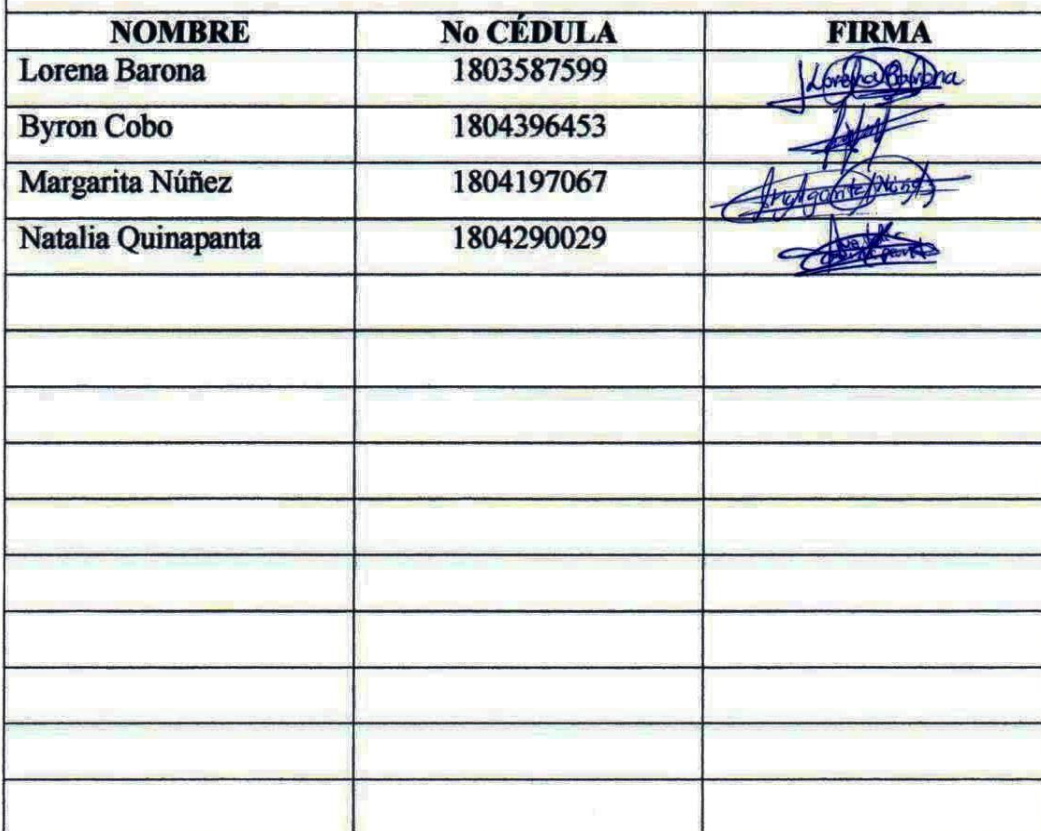 NOMBRE No CÉDULA FIRMA
Lorena Barona 1803587599 Lorena Barona
Byron Cobo 1804396453
Margarita Núñez 1804197067 Margarita Núñez
Natalia Quinapanta 1804290029